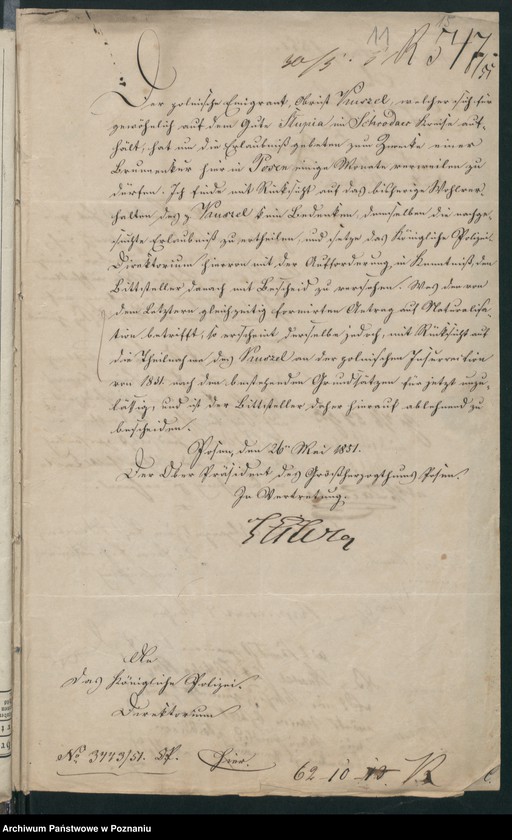 15
11
30/5. R 547/51
Der polnische Emigrant, Obrist Kuszel, welcher sich für
gewöhnlich auf dem Gute Slupia im Schrodaer Kreise auf-
hält, hat um die Erlaubniß gebeten zum Zwecke einer
Brunnenkur hier in Posen einige Monate verweilen zu
dürfen. Ich finde mit Rücksicht auf das bisherige Wohlver-
halten des p Kuszel kein Bedenken, demselben die nachge-
suchte Erlaubniß zu ertheilen, und setze das Königliche Polizei
Direktorium hiervon mit der Aufforderung in Kenntniß, den
Bittsteller danach mit Bescheid zu versehen. Was den von
dem Letztern gleichzeitig formirten Antrag auf Naturalisa-
tion betrifft, so erscheint derselbe jedoch, mit Rücksicht auf
die Theilnahme des Kuszel an der polnischen Insurrection
von 1831. nach den bestehenden Grundsätzen für jetzt unzu-
lässig, und ist der Bittsteller daher hierauf ablehnend zu
bescheiden.
Posen, den 26ten Mai 1851.
Der Ober Präsident des Großherzogthums Posen.
In Vertretung.
An
das Königliche Polizei-
Direktorium
No 3773/51. hier.
62-10-
Archiwum Państwowe w Poznaniu